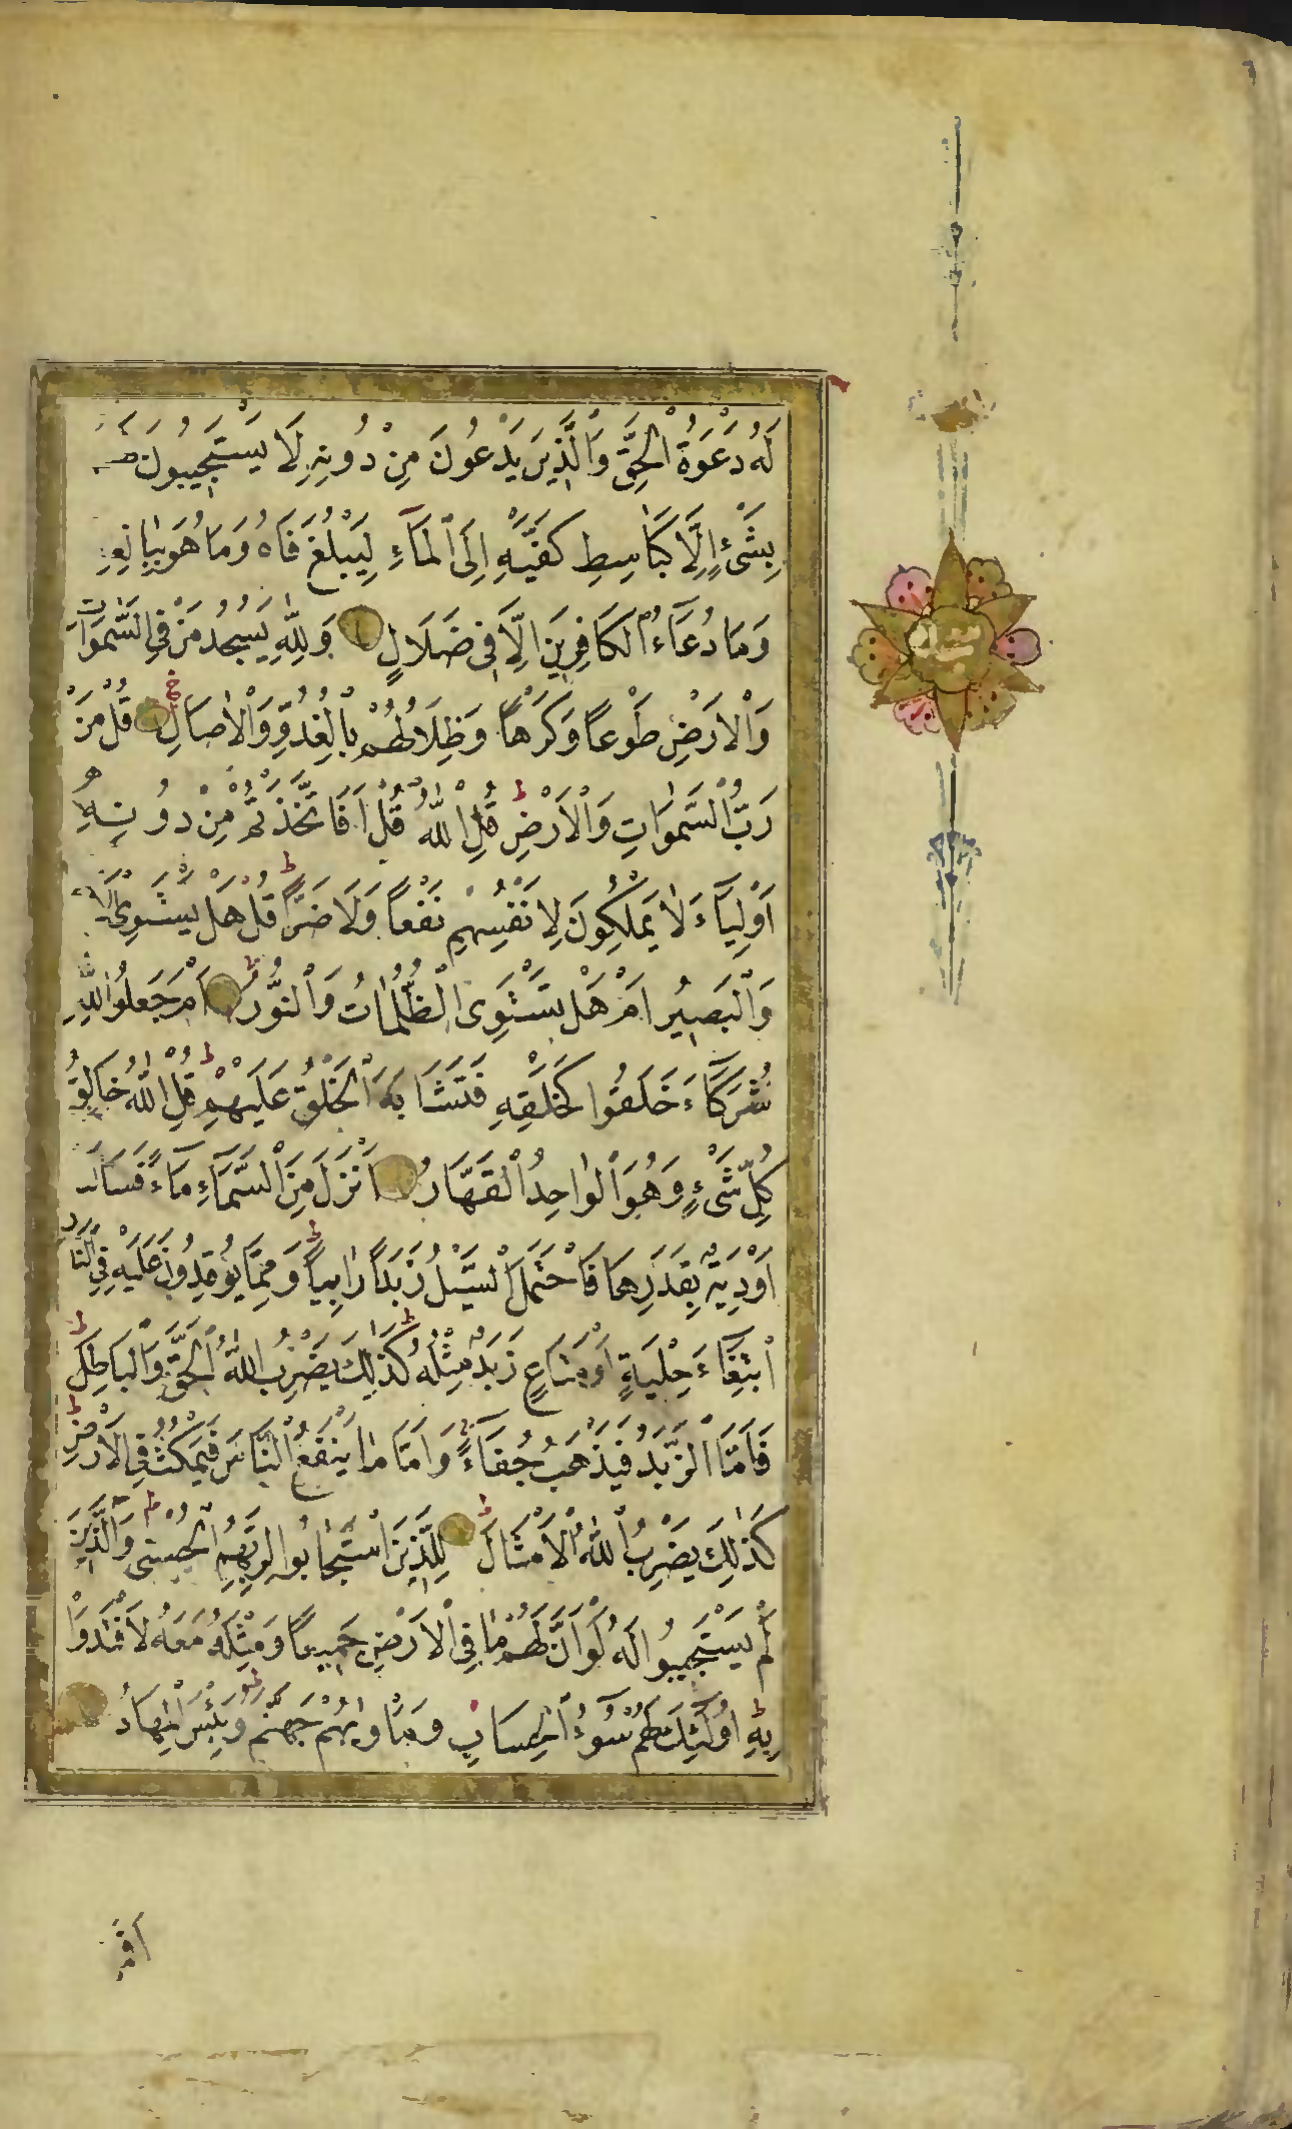 لَهُ دَعْوَةُ الْحَقِّ وَالَّذِينَ يَدْعُونَ مِنْ دُونِهِ لَا يَسْتَجِيبُونَ لَهُمْ
بِشَيْءٍ إِلَّا كَبَاسِطِ كَفَّيْهِ إِلَى الْمَاءِ لِيَبْلُغَ فَاهُ وَمَا هُوَ بِبَالِغِهِ
وَمَا دُعَاءُ الْكَافِرِينَ إِلَّا فِي ضَلَالٍ وَلِلَّهِ يَسْجُدُ مَنْ فِي السَّمَوَاتِ
وَالْأَرْضِ طَوْعًا وَكَرْهًا وَظِلَالُهُمْ بِالْغُدُوِّ وَالْآصَالِ قُلْ مَنْ
رَبُّ السَّمَوَاتِ وَالْأَرْضِ قُلِ اللَّهُ قُلْ أَفَاتَّخَذْتُمْ مِنْ دُونِهِ
أَوْلِيَاءَ لَا يَمْلِكُونَ لِأَنْفُسِهِمْ نَفْعًا وَلَا ضَرًّا قُلْ هَلْ يَسْتَوِي الْأَ
وَالْبَصِيرُ أَمْ هَلْ يَسْتَوِي الظُّلُمَاتُ وَالنُّورُ أَمْ جَعَلُوا لِلَّهِ
شُرَكَاءَ خَلَقُوا كَخَلْقِهِ فَتَشَابَهَ الْخَلْقُ عَلَيْهِمْ قُلِ اللَّهُ خَالِقُ
كُلِّ شَيْءٍ وَهُوَ الْوَاحِدُ الْقَهَّارُ أَنْزَلَ مِنَ السَّمَاءِ مَاءً فَسَالَتْ
أَوْدِيَةٌ بِقَدَرِهَا فَاحْتَمَلَ السَّيْلُ زَبَدًا رَابِيًا وَمِمَّا يُوقِدُونَ عَلَيْهِ فِي النَّارِ
ابْتِغَاءَ حِلْيَةٍ أَوْ مَتَاعٍ زَبَدٌ مِثْلُهُ كَذَلِكَ يَضْرِبُ اللَّهُ الْحَقَّ وَالْبَاطِلَ
فَأَمَّا الزَّبَدُ فَيَذْهَبُ جُفَاءً وَأَمَّا مَا يَنْفَعُ النَّاسَ فَيَمْكُثُ فِي الْأَرْضِ
كَذَلِكَ يَضْرِبُ اللَّهُ الْأَمْثَالَ لِلَّذِينَ اسْتَجَابُوا لِرَبِّهِمُ الْحُسْنَى وَالَّذِينَ
لَمْ يَسْتَجِيبُوا لَهُ لَوْ أَنَّ لَهُمْ مَا فِي الْأَرْضِ جَمِيعًا وَمِثْلَهُ مَعَهُ لَافْتَدَوْا
بِهِ أُولَئِكَ لَهُمْ سُوءُ الْحِسَابِ وَمَأْوَيهُمْ جَهَنَّمُ وَبِئْسَ الْمِهَادُ
أَفَمَنْ